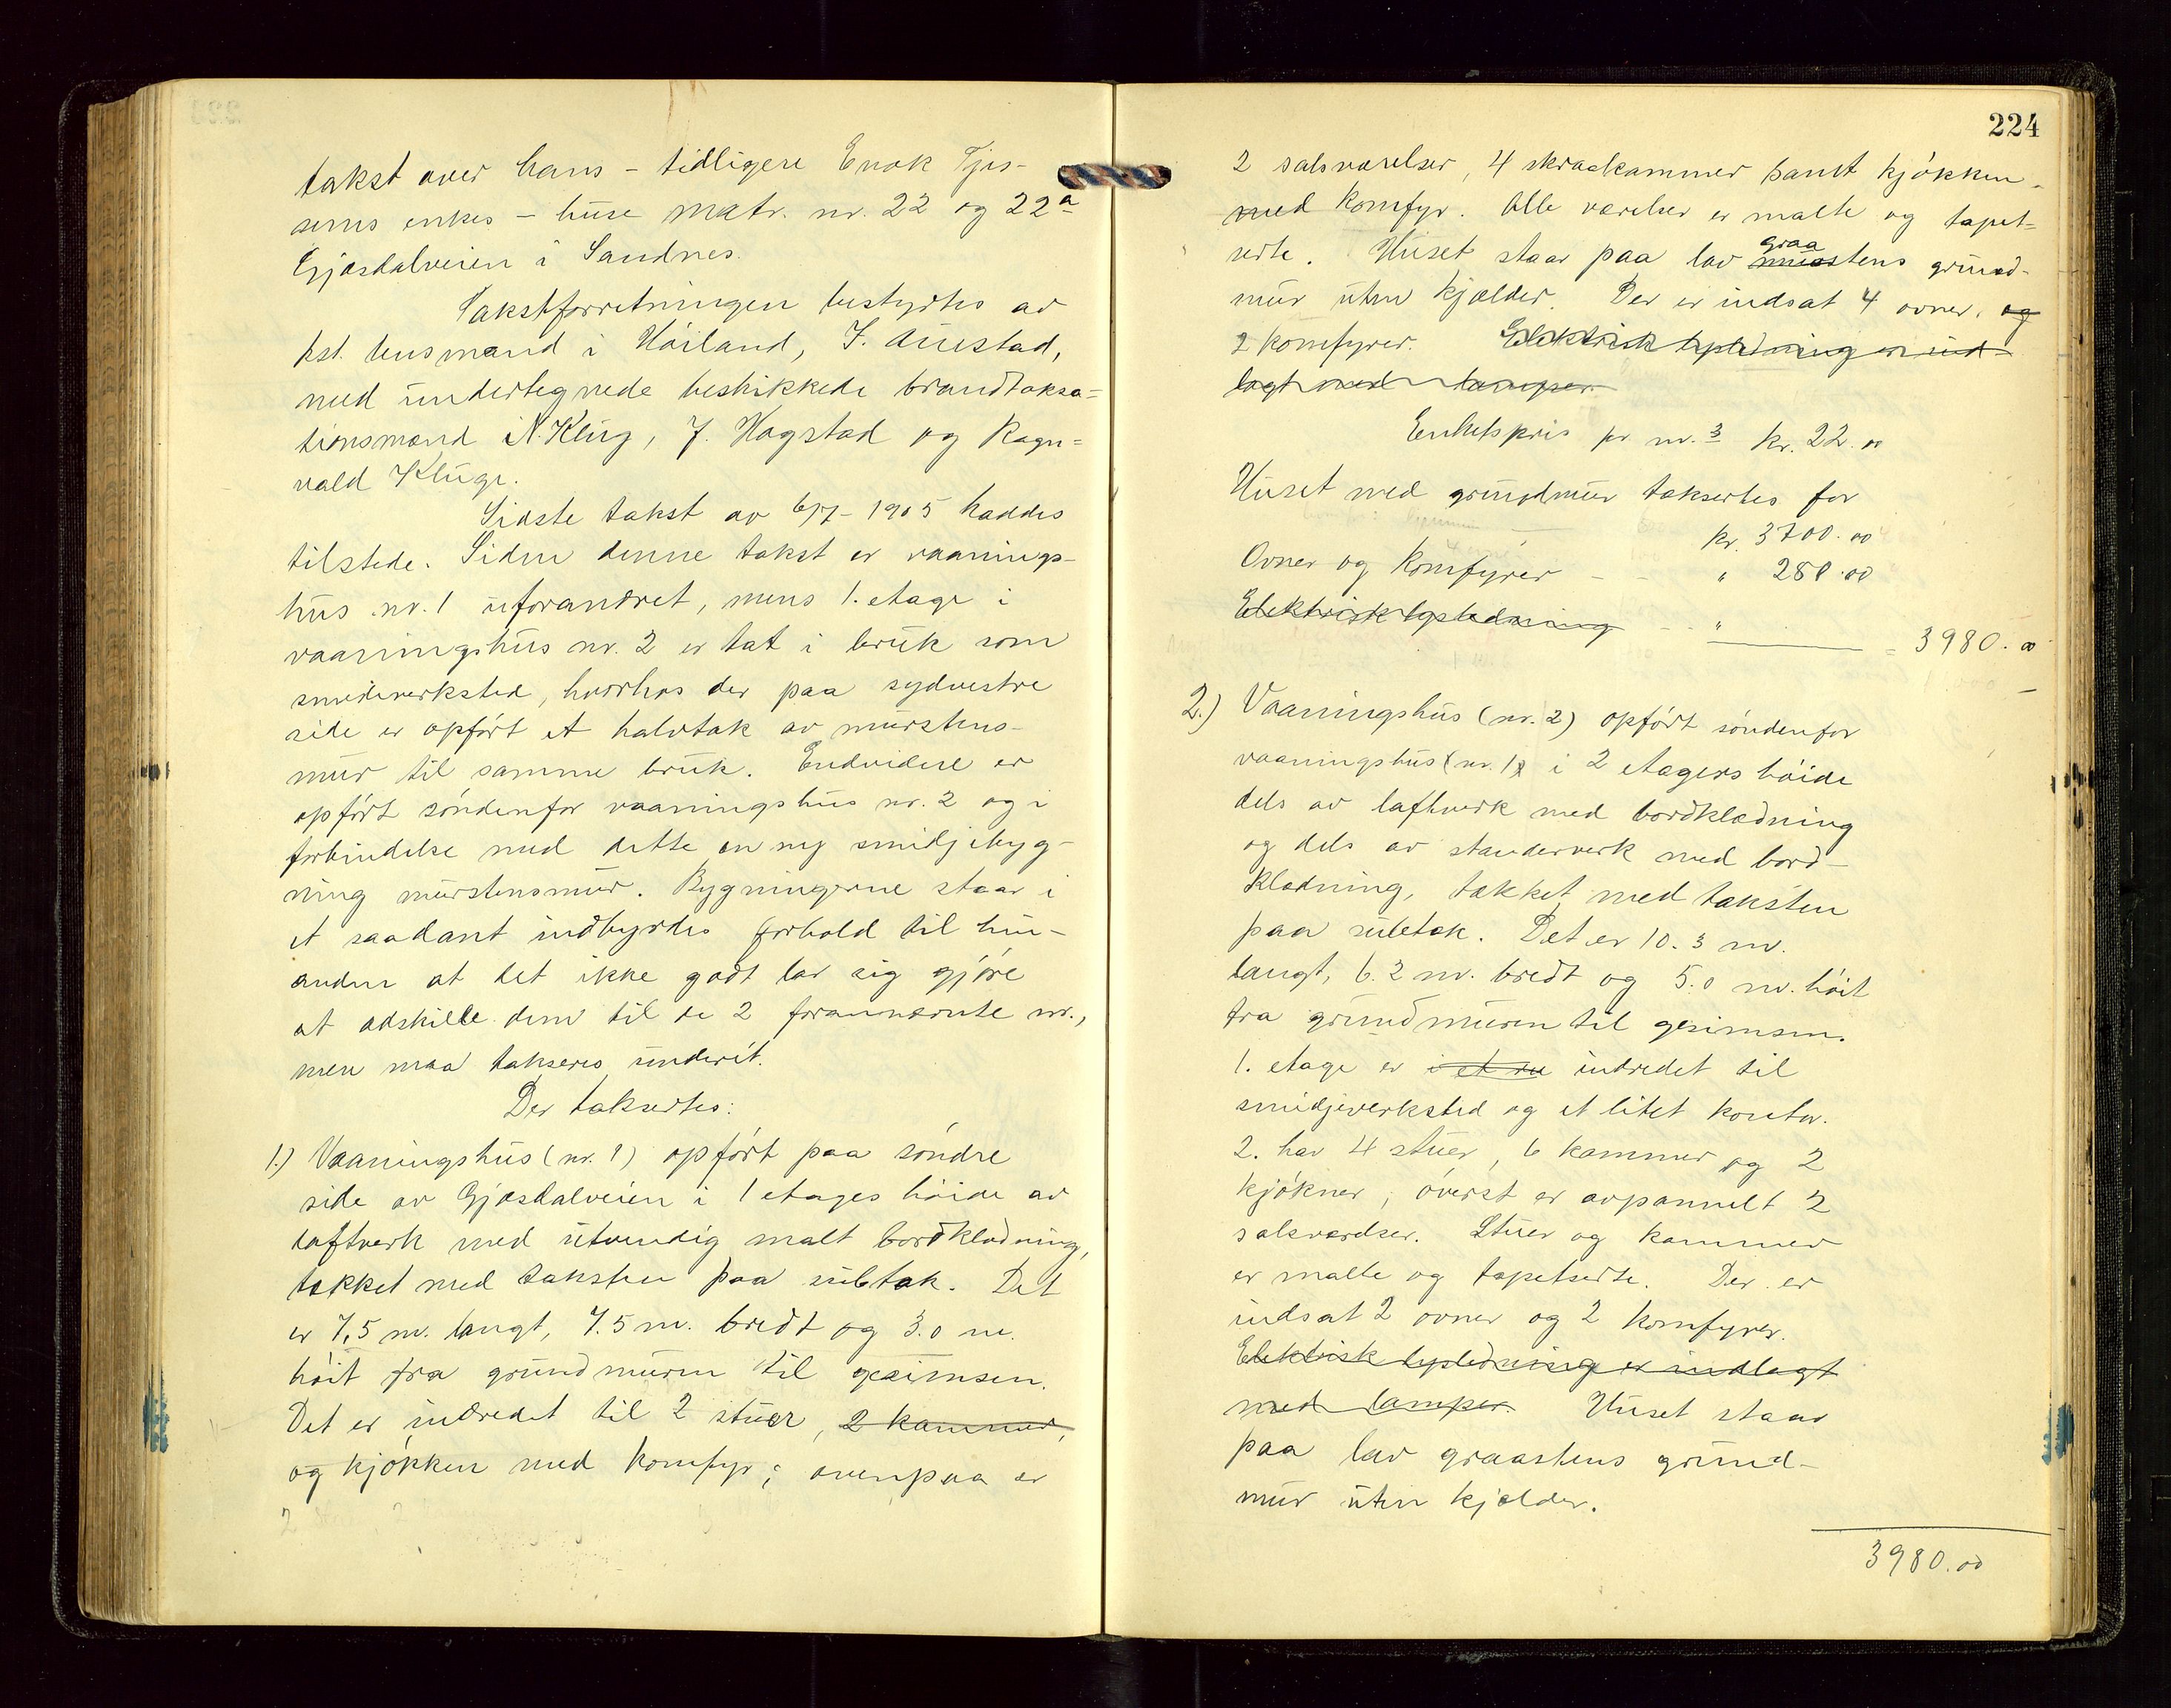 takst over hans – tidligere Enok Tjes-
sems enkes – huse matr. nr. 22 og 22a
Gjæsdalveien i Sandnes.
Takstforretningen bestyrtes av
kst. lensmand i Høiland, T. Auestad,
med undertegnede beskikkede brandtaksa=
tionsmænd N. Klug, J. Hogstad og Ragn=
vald Kluge.
Sidste takst av 6/7 – 1905 haddes
tilstede. Siden denne takst er vaanings-
hus nr. 1 uforandret, mens 1. etage i
vaaningshus nr. 2 er tat i bruk som
smedeverksted, hvorhos der paa sydvestre
side er opført et halvtak av murstens-
mur til samme bruk. Endvidere er
opført søndenfor vaaningshus nr. 2 og i
forbindelse med dette en ny smidjebyg-
ning murstensmur. Bygningerne staar i
et saadant indbyrdes forhold til hin-
anden at det ikke godt lar sig gjøre
at adskille dem til de 2 forannævnte nr.,
men maa takseres underit.
Der taksertes:
1.) Vaaningshus (nr. 1) opført paa søndre
side av Gjæsdalveien i 1 etages høide av
laftverk med utvendig malt bordklædning,
tækket med taksten paa subtak. Det
er 7,5 m. langt, 7.5 m. bredt og 3.0 m.
høit fra grundmuren til gesimsen.
Det er indredet til 2 stuer, 2 kammer,
og kjøkken med komfyr; ovenpaa er
224
2 salsværelser, 4 skraakammer samt kjøkken
med komfyr. Alle værelser er malte og tapet=
serte. Huset staar paa lav graa
murstens grund-
mur uten kjælder. Der er indsat 4 ovner, og
2 komfyrer. Elektrisk lysledning er ind-
lagt med lamper.
Enhetspris pr m.3 kr. 22.00
Huset med grundmur taksertes for
kr. 3700.00
Ovner og komfyrer – – " 280.00
Elektrisk lysledning – – "
= 3980.00
2.) Vaaningshus (nr. 2) opført søndenfor
vaaningshus (nr. 1) i 2 etagers høide
dels av laftverk med bordklædning
og dels av stenderverk med bord-
klædning, tækket med taksten
paa subtak. Det er 10.3 m.
langt, 6.2 m. bredt og 5.0 m. høit
fra grundmuren til gesimsen.
1. etage er i et ru indredet til
smidjeverksted og et litet kontor.
2. har 4 stuer, 6 kammer og 2
kjøkner; øverst er avpannelt 2
salsværelser. Stuer og kammer
er malte og tapetserte. Der er
indsat 2 ovner og 2 komfyrer.
Elektrisk lysledning er indlagt
med lamper. Huset staar
paa lav graastens grund-
mur uten kjælder.
3980.00